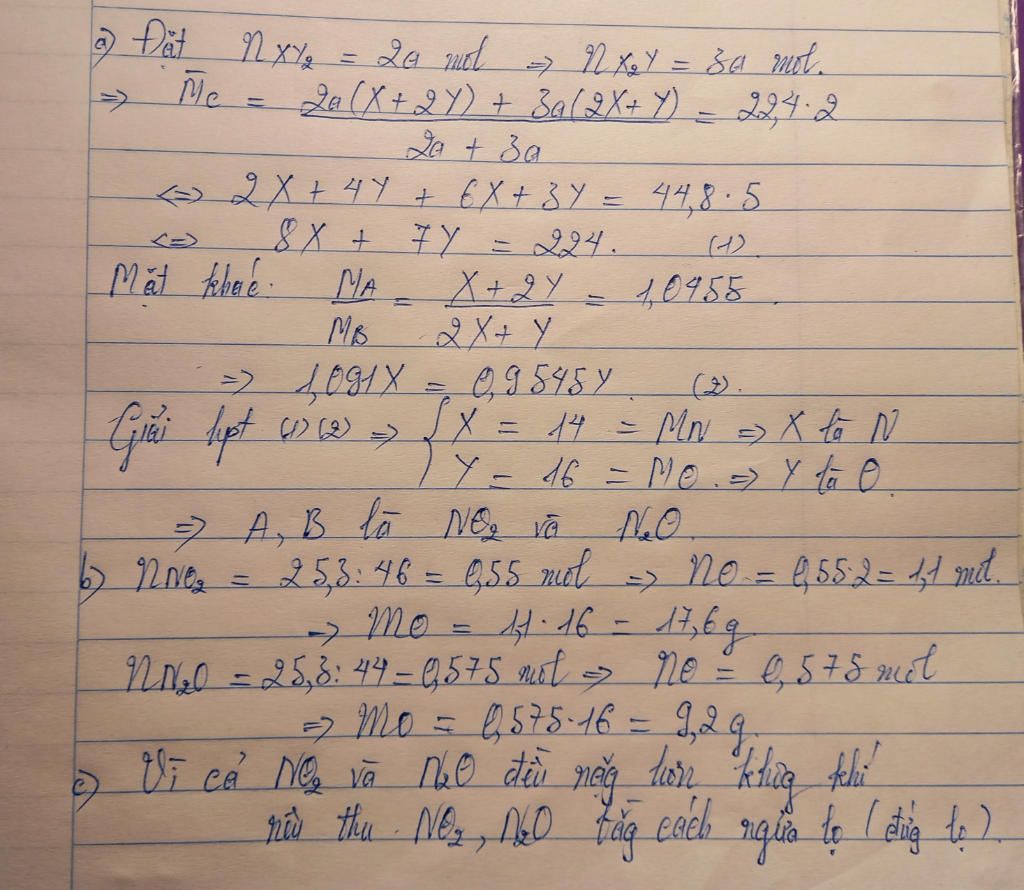 a) Đặt nXY₂ = 2a mol => nX₂Y = 3a mol.
=> M̄c = (2a(X + 2Y) + 3a(2X + Y)) / (2a + 3a) = 22,4 · 2
<=> 2X + 4Y + 6X + 3Y = 44,8 · 5
<=> 8X + 7Y = 224. (1).
Mặt khác: MA/MB = (X + 2Y)/(2X + Y) = 1,0455.
=> 1,091X = 0,9545Y. (2).
Giải hpt (1)(2) => { X = 14 = MN => X là N
Y = 16 = MO. => Y là O.
=> A, B là NO₂ và N₂O.
b) nNO₂ = 25,3 : 46 = 0,55 mol => nO = 0,55·2 = 1,1 mol.
=> mO = 1,1 · 16 = 17,6g
nN₂O = 25,3 : 44 = 0,575 mol => nO = 0,575 mol
=> mO = 0,575·16 = 9,2g.
c) Vì cả NO₂ và N₂O đều nặg hơn khôg khí
nên thu NO₂, N₂O bằg cách ngửa lọ (đứg lọ).